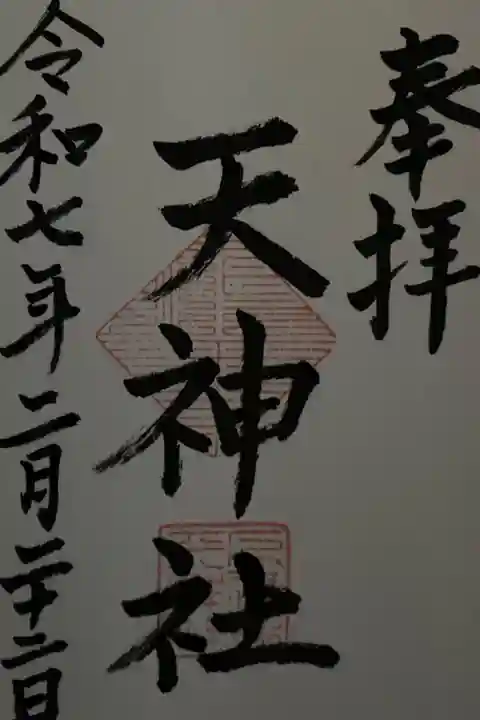 奉拝
天神社
令和七年二月二十二日